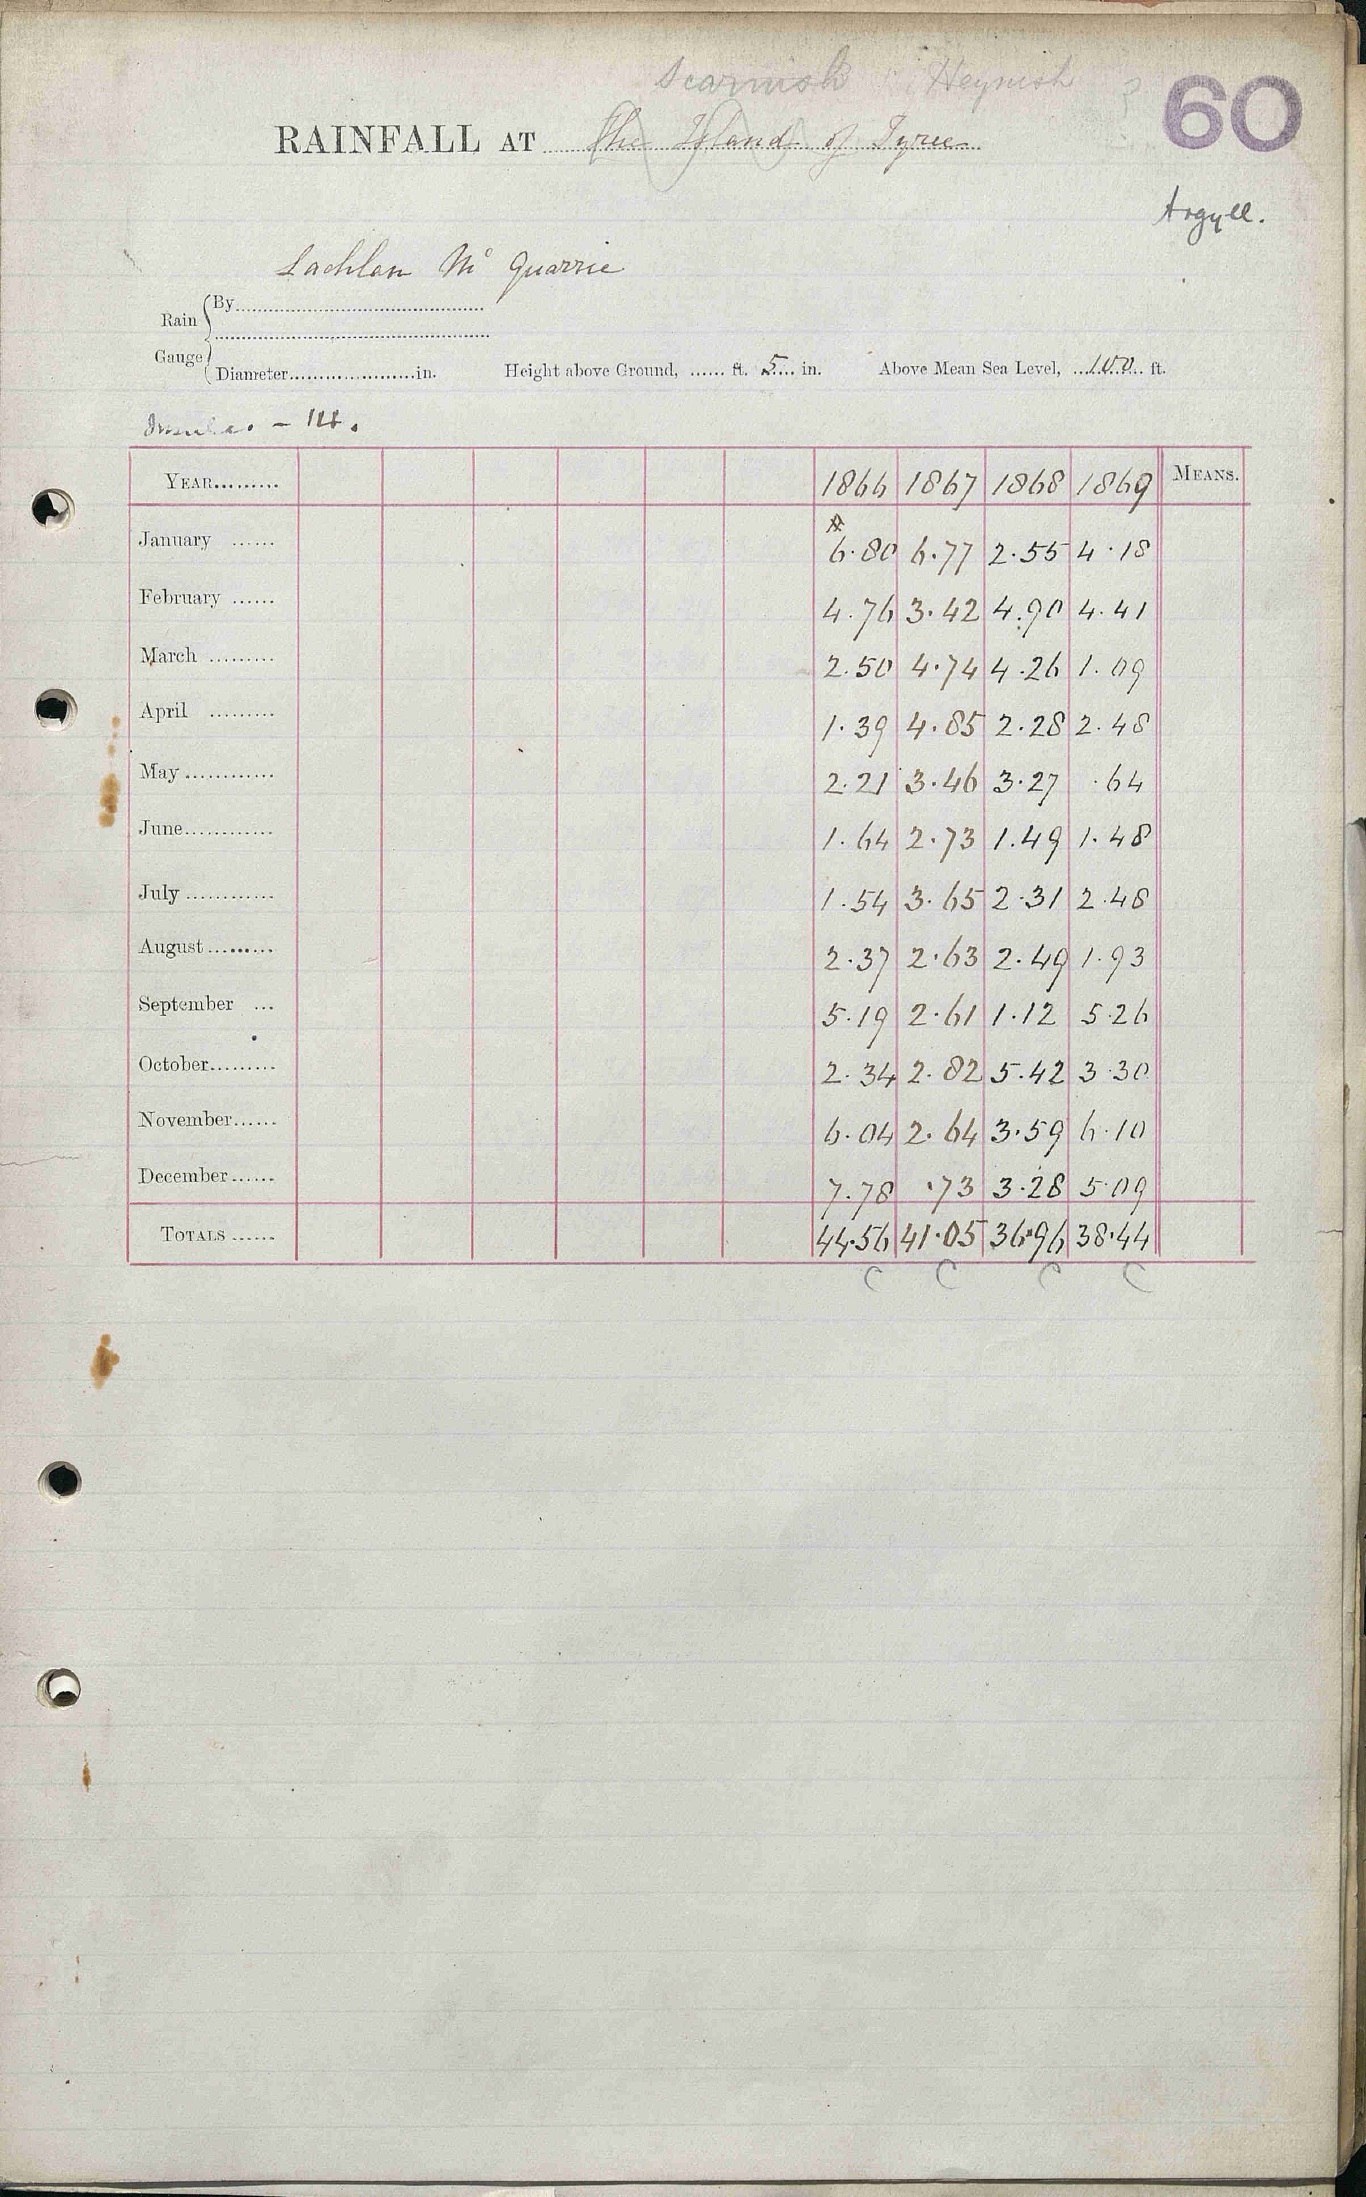 Scarnish Heynish ?
60
RAINFALL AT the Island of Tyree
Argyll.
Lachlan Mc Quarrie
Rain Gauge { By
Diameter in. Height above Ground, ft. 5 in. Above Mean Sea Level, 100 ft.
- 14.
YEAR 1866 1867 1868 1869 MEANS.
January 6.80 6.77 2.55 4.18
February 4.76 3.42 4.90 4.41
March 2.50 4.74 4.26 1.09
April 1.39 4.85 2.28 2.48
May 2.21 3.46 3.27 .64
June 1.64 2.73 1.49 1.48
July 1.54 3.65 2.31 2.48
August 2.37 2.63 2.49 1.93
September 5.19 2.61 1.12 5.26
October 2.34 2.82 5.42 3.30
November 6.04 2.64 3.59 6.10
December 7.78 .73 3.28 5.09
TOTALS 44.56 41.05 36.96 38.44
C C C C